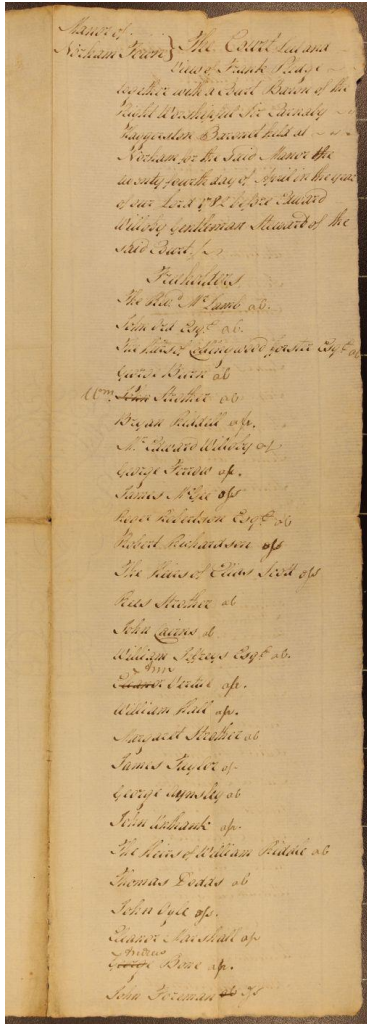 Manor of
Norham Town } The Court Leet and
View of Frank Pledge
together with a Court Baron of the
Right Worshipful Sir Carnaby
Haggerston Baronet held at
Norham for the said Manor the
twenty fourth day of April in the year
of our Lord before Edward
Willoby Gentleman Steward of the
said Court
Freeholders
The Revd Mr Lamb ab.
John Ord Esqr ab.
The Heirs of Collingwood Forster Esqr ab
George Burn ab
Wm John Strother ab.
Bryan Riddell ap.
Mr Edward Willoby ap
George ap.
James McGee aps
Roger Robertson Esqr ab
Robert Richardson aps
The Heirs of Elias Scott aps
Strother ab
John Cairns ab
William Esqr ab.
Ann
Eleanor ap.
William Hall ap.
Margaret Strother ab
James Taylor ap
George Aynsley ab
John Unthank ap.
The Heirs of William Riddle ab
Thomas Dodds ab
John aps.
Eleanor Marshall ap
Andrew
George Bone ap.
John Foreman ab aps